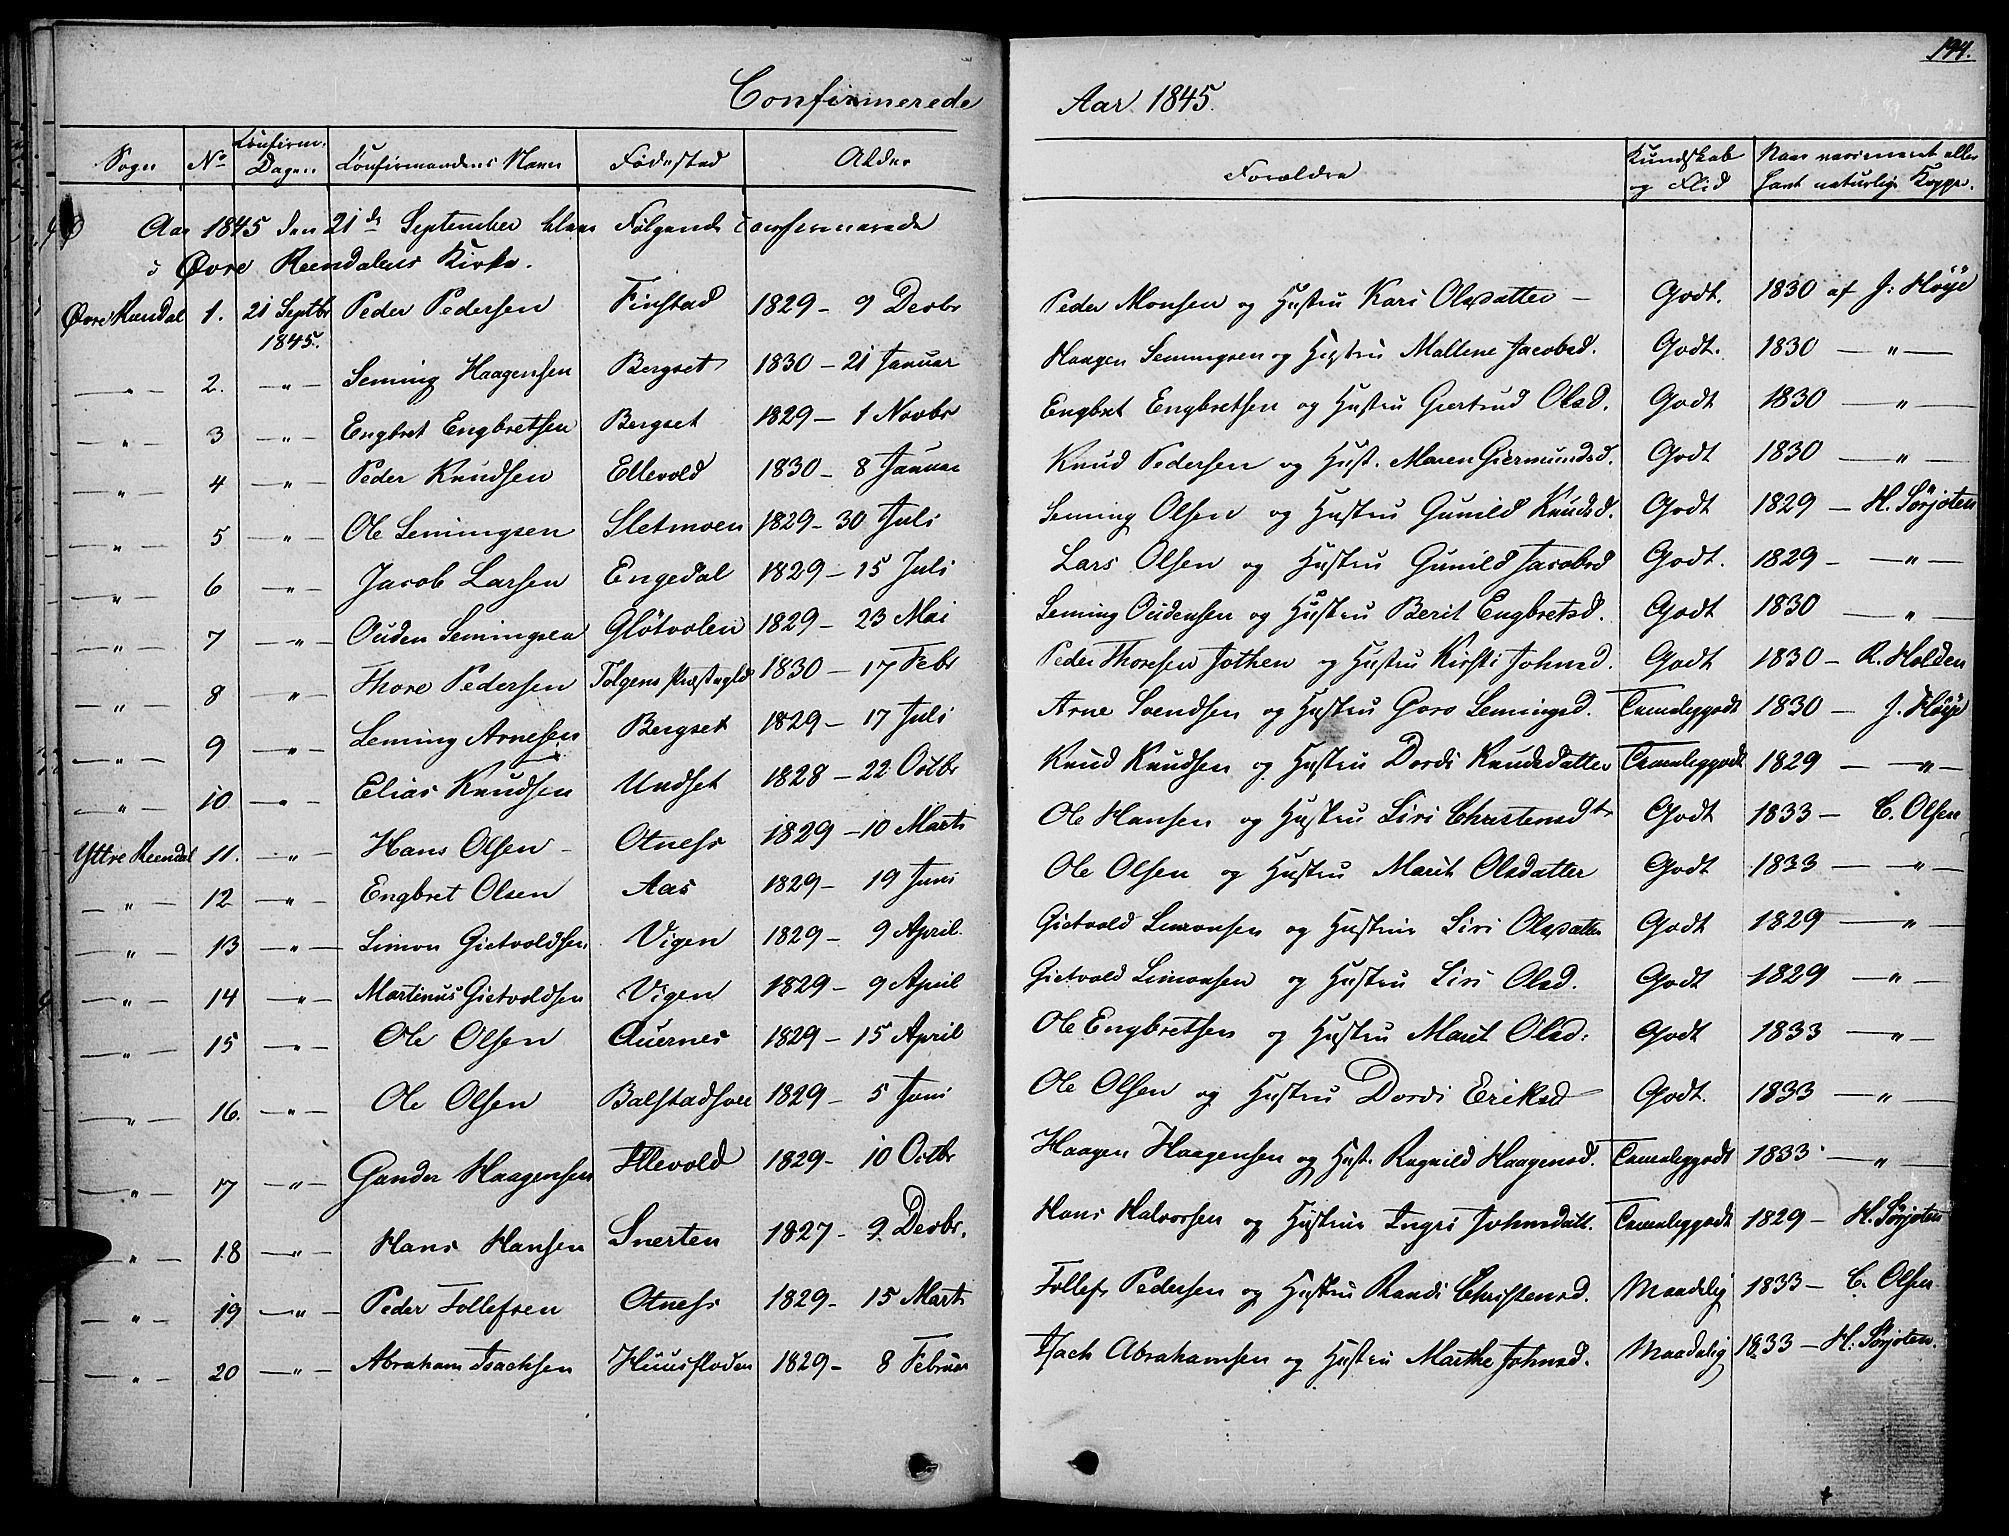 194.
Confirmerede Aar 1845.
Sogn No Confirm. Dagen Confirmandens Navn Fødested Alder Forældre Kundskab og Flid Naar vaccineret eller havt naturlige Kopper.
Aar 1845 den 21de September blev Følgende confirmerede
i Øvre Reendalens Kirke.
Øvre Rendal 1. 21 Septbr 1845. Peder Pedersen Finstad 1829 - 9 Decbr Peder Monsen og Hustru Kari Olsdatter - Godt. 1830 af J: Höye
— " — 2. — " — Seming Haagensen Bergset 1830 - 21 Januar Haagen Semingsen og Hustru Mallene Jacobsd. Godt. 1830 — " —
— " — 3 — " — Engbret Engbretsen Bergset 1829 - 1 Novbr Engbret Engbretsen og Hustru Giertrud Olsd. Godt 1830 — " —
— " — 4 — " — Peder Knudsen Ellevold 1830 - 8 Januar Knud Pedersen og Hust. Maren Giermundsd. Godt 1830 — " —
— " — 5 — " — Ole Semingsen Sletmoen 1829 - 30 Juli Seming Olsen og Hustru Gunild Knudsd. Godt 1829 — H. Sörjoten
— " — 6 — " — Jacob Larsen Engedal 1829 - 15 Juli Lars Olsen og Hustru Gunild Jacobsd Godt. 1829 - — " —
— " — 7 — " — Ouden Semingsen Glötvolen 1829 - 23 Mai Seming Oudensen og Hustru Berit Engbretsd. Godt 1830 — " —
— " — 8 — " — Thore Pedersen Tolgens Præstegld 1830 - 17 Febr Peder Thoresen Jothen og Hustru Kirsti Johnsd. Godt 1830 - R. Holden
— " — 9 — " — Seming Arnesen Bergset 1829 - 17 Juli Arne Svendsen og Hustru Goro Semingsd. Temeliggodt 1830 — J. Höye
— " — 10 — " — Elias Knudsen Undset 1828 - 22 Octbr Knud Knudsen og Hustru Dordi Knudsdatter Temeliggodt 1829 - — " —
Yttre Reendal 11. — " — Hans Olsen - Otness 1829 - 10 Marts Ole Hansen og Hustru Siri Christensdtr Godt 1833 — C. Olsen
— " — 12 — " — Engbret Olsen Aas 1829 - 19 Juni Ole Olsen og Hustru Marit Olsdatter Godt 1833 — " —
— " — 13 — " — Simon Gietvoldsen Vigen 1829 - 9 April. Gietvold Simonsen og Hustru Siri Olsdatter Godt 1829 — " —
— " — 14 — " — Martinus Gietvoldsen Vigen 1829 - 9 April Gietvold Simonsen og Hustru Siri Olsd. Godt 1829 — " —
— " — 15 — " — Ole Olsen Quernes 1829 - 15 April Ole Engbretsen og Hustru Marit Olsd: Godt 1833 — " —
— " — 16. — " — Ole Olsen 1829 - 5 Juni Ole Olsen og Hustru Dordi Eriksd Godt. 1833 — " —
— " — 17 — " — Gunder Haagensen Illevold 1829 - 10 Octbr Haagen Haagensen og Hust. Ragnild Haagensd. Temeliggodt 1833 — " —
— " — 18 — " — Hans Hansen Snerten 1827 - 9. Decbr. Hans Halvorsen og Hustrue Ingri Johnsdatt. Temeliggodt 1829 - H. Sörjoten
— " — 19 — " — Peder Tollefsen Otness 1829 - 15 Marts Tollef Pedersen og Hustru Randi Christensd. Maadelig 1833 - C. Olsen
— " — 20 — " — Abraham Isachsen Huusfloden 1829 - 8 Februar Isach Abrahamsen og Hustru Marthe Johnsd. Maadelig 1833 - H. Sörjoten.